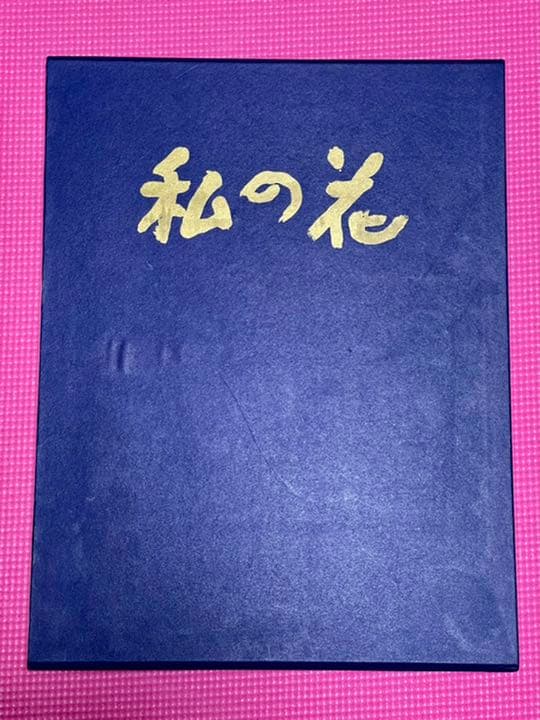 私の花